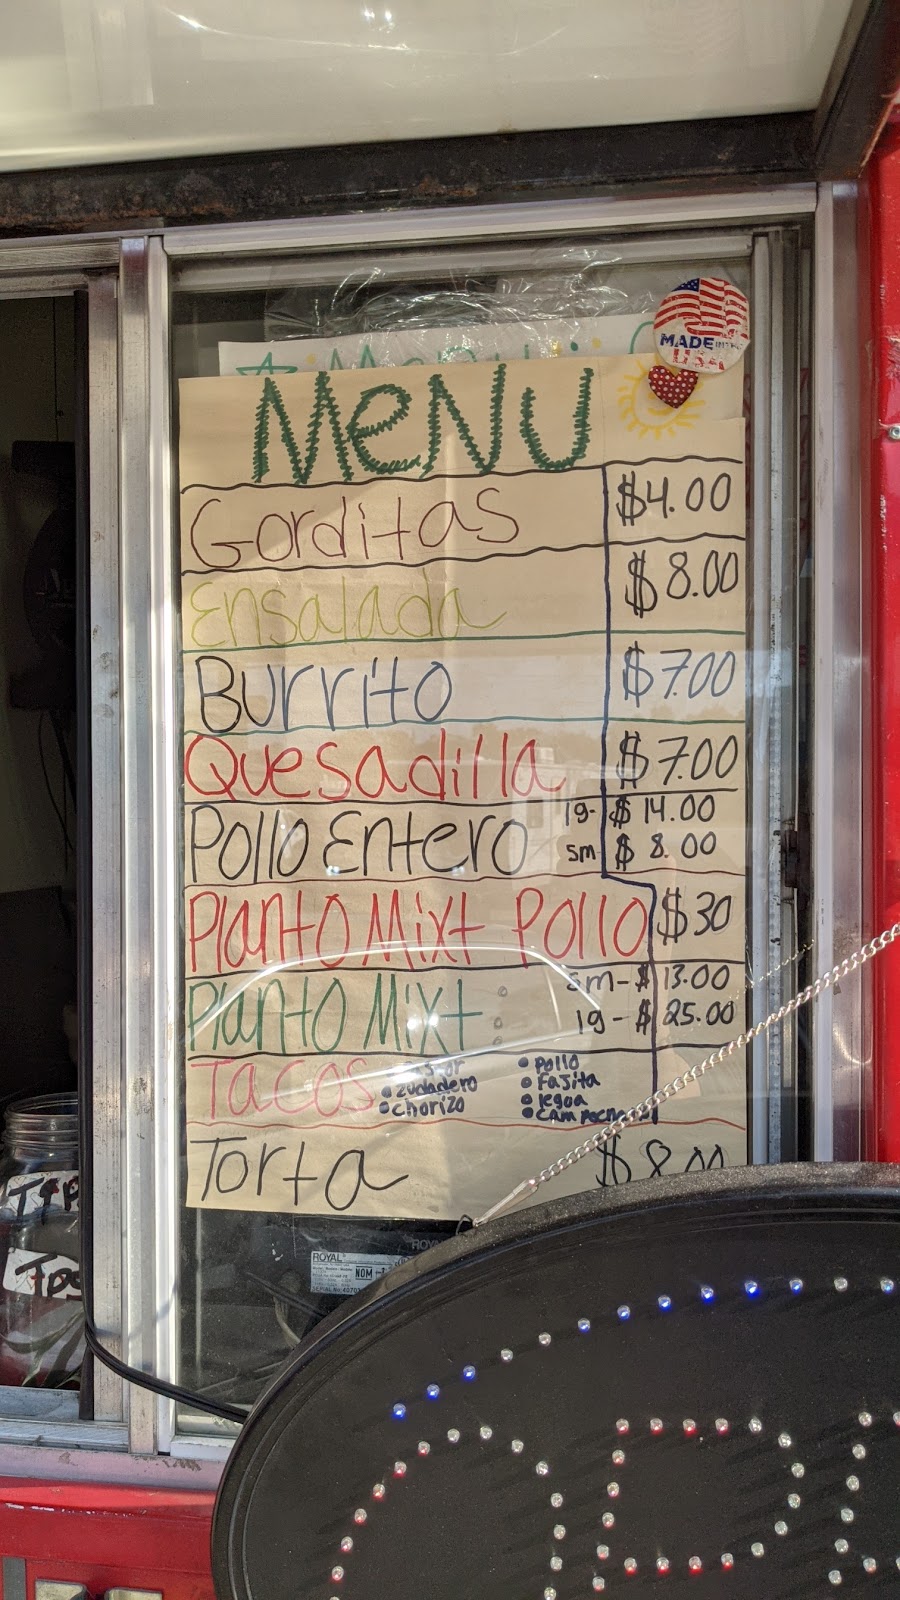 MADE IN THE
USA
MeNU
Gorditas $4.00
Ensalada $8.00
Burrito $7.00
Quesadilla $7.00
Pollo Entero lg- $14.00
sm $8.00
Planto Mixt Pollo $30
Planto Mixt sm-$13.00
lg-$25.00
Tacos
• Pollo
• zudadero • Fajita
• chorizo • legua
Torta $8.00
ROYAL
NOM